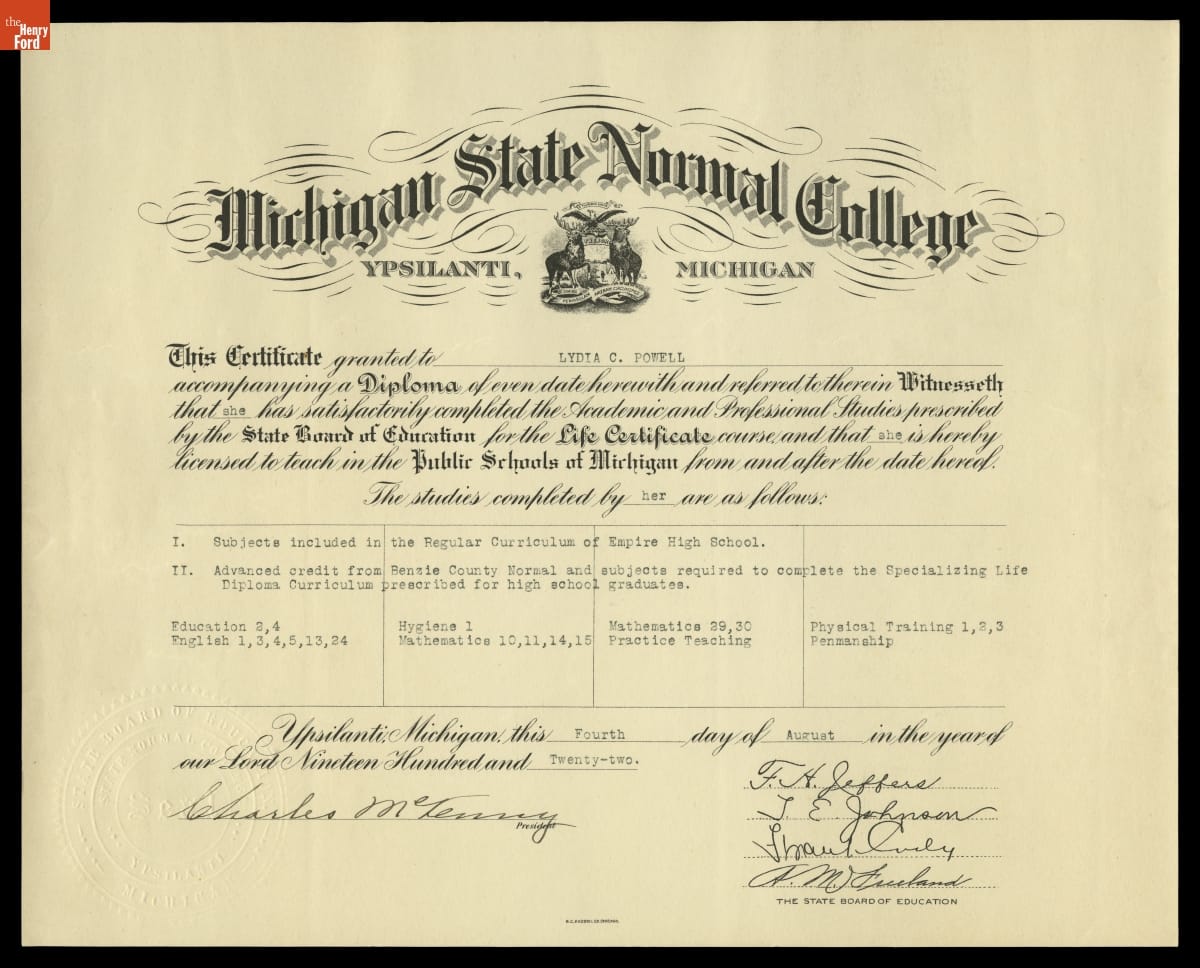 the
Henry
Ford
Michigan State Normal College
YPSILANTI, MICHIGAN
This Certificate granted to LYDIA C. POWELL
accompanying a Diploma of even date herewith and referred to therein Witnesseth
that she has satisfactorily completed the Academic and Professional Studies prescribed
by the State Board of Education for the Life Certificate course, and that she is hereby
licensed to teach in the Public Schools of Michigan from and after the date hereof.
The studies completed by her are as follows:
I. Subjects included in the Regular Curriculum of Empire High School.
II. Advanced credit from Benzie County Normal and subjects required to complete the Specializing Life
Diploma Curriculum prescribed for high school graduates.
Education 2,4 Hygiene 1 Mathematics 29,30 Physical Training 1,2,3
English 1,3,4,5,13,24 Mathematics 10,11,14,15 Practice Teaching Penmanship
Ypsilanti, Michigan, this Fourth day of August in the year of
our Lord Nineteen Hundred and Twenty-two.
F. H. Jeffers
Charles McKenny
President
T. E. Johnson
Frank Cody
A. M. Freeland
THE STATE BOARD OF EDUCATION
YPSILANTI
MICHIGAN